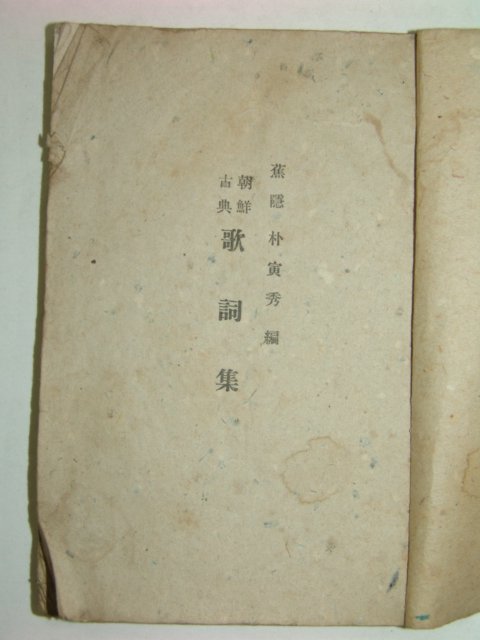 蕉隱 朴寅秀 編
朝鮮古典 歌詞集